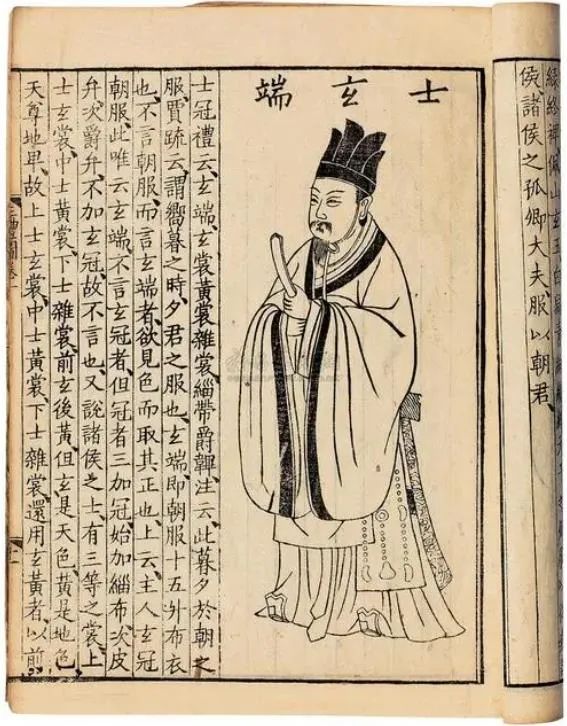 佩山玄玉
侯諸侯之孤卿大夫服以朝君
士玄端
士冠禮云玄端玄裳黃裳雜裳緇帶爵韠注云此暮夕於朝之
服賈疏云謂嚮暮之時夕君之服也玄端即朝服十五升布衣
也不言朝服而言玄端者欲見色而取其正也上云主人玄冠
朝服此唯云玄端不言玄冠者但冠者三加冠始加緇布次皮
弁次爵弁不加玄冠故不言也又說諸侯之士有三等之裳上
士玄裳中士黃裳下士雜裳前玄後黃但玄是天色黃是地色
天尊地卑故上士玄裳中士黃裳下士雜裳還用玄黃者以前